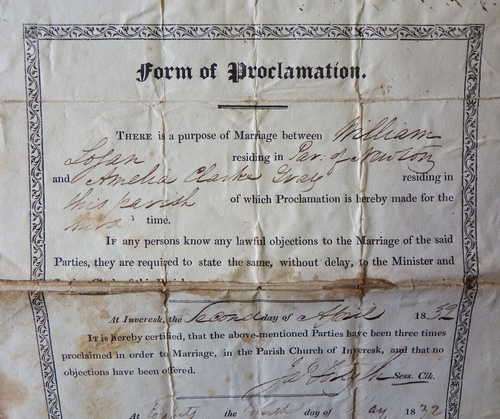 Form of Proclamation.
THERE is a purpose of Marriage between William
Logan residing in Par. of Newton
and Amelia Clarke Gray residing in
this parish of which Proclamation is hereby made for the
third time.
IF any persons know any lawful objections to the Marriage of the said
Parties, they are required to state the same, without delay, to the Minister and
At Inveresk, the Second day of April 1832
It is hereby certified, that the above-mentioned Parties have been three times
proclaimed in order to Marriage, in the Parish Church of Inveresk, and that no
objections have been offered.
Sess. Clk.
At the day of 1832